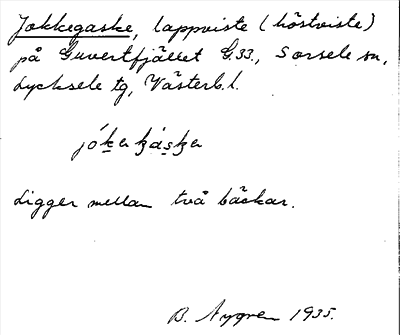 Jokkegaske, lappviste (höstviste)
på Guvertfjället G.33., Sorsele sn,
Lycksele tg, Västerb. l.
jóḵa ḵás̱ḵa
Ligger mellan två bäckar.
B. Nygren 1935.